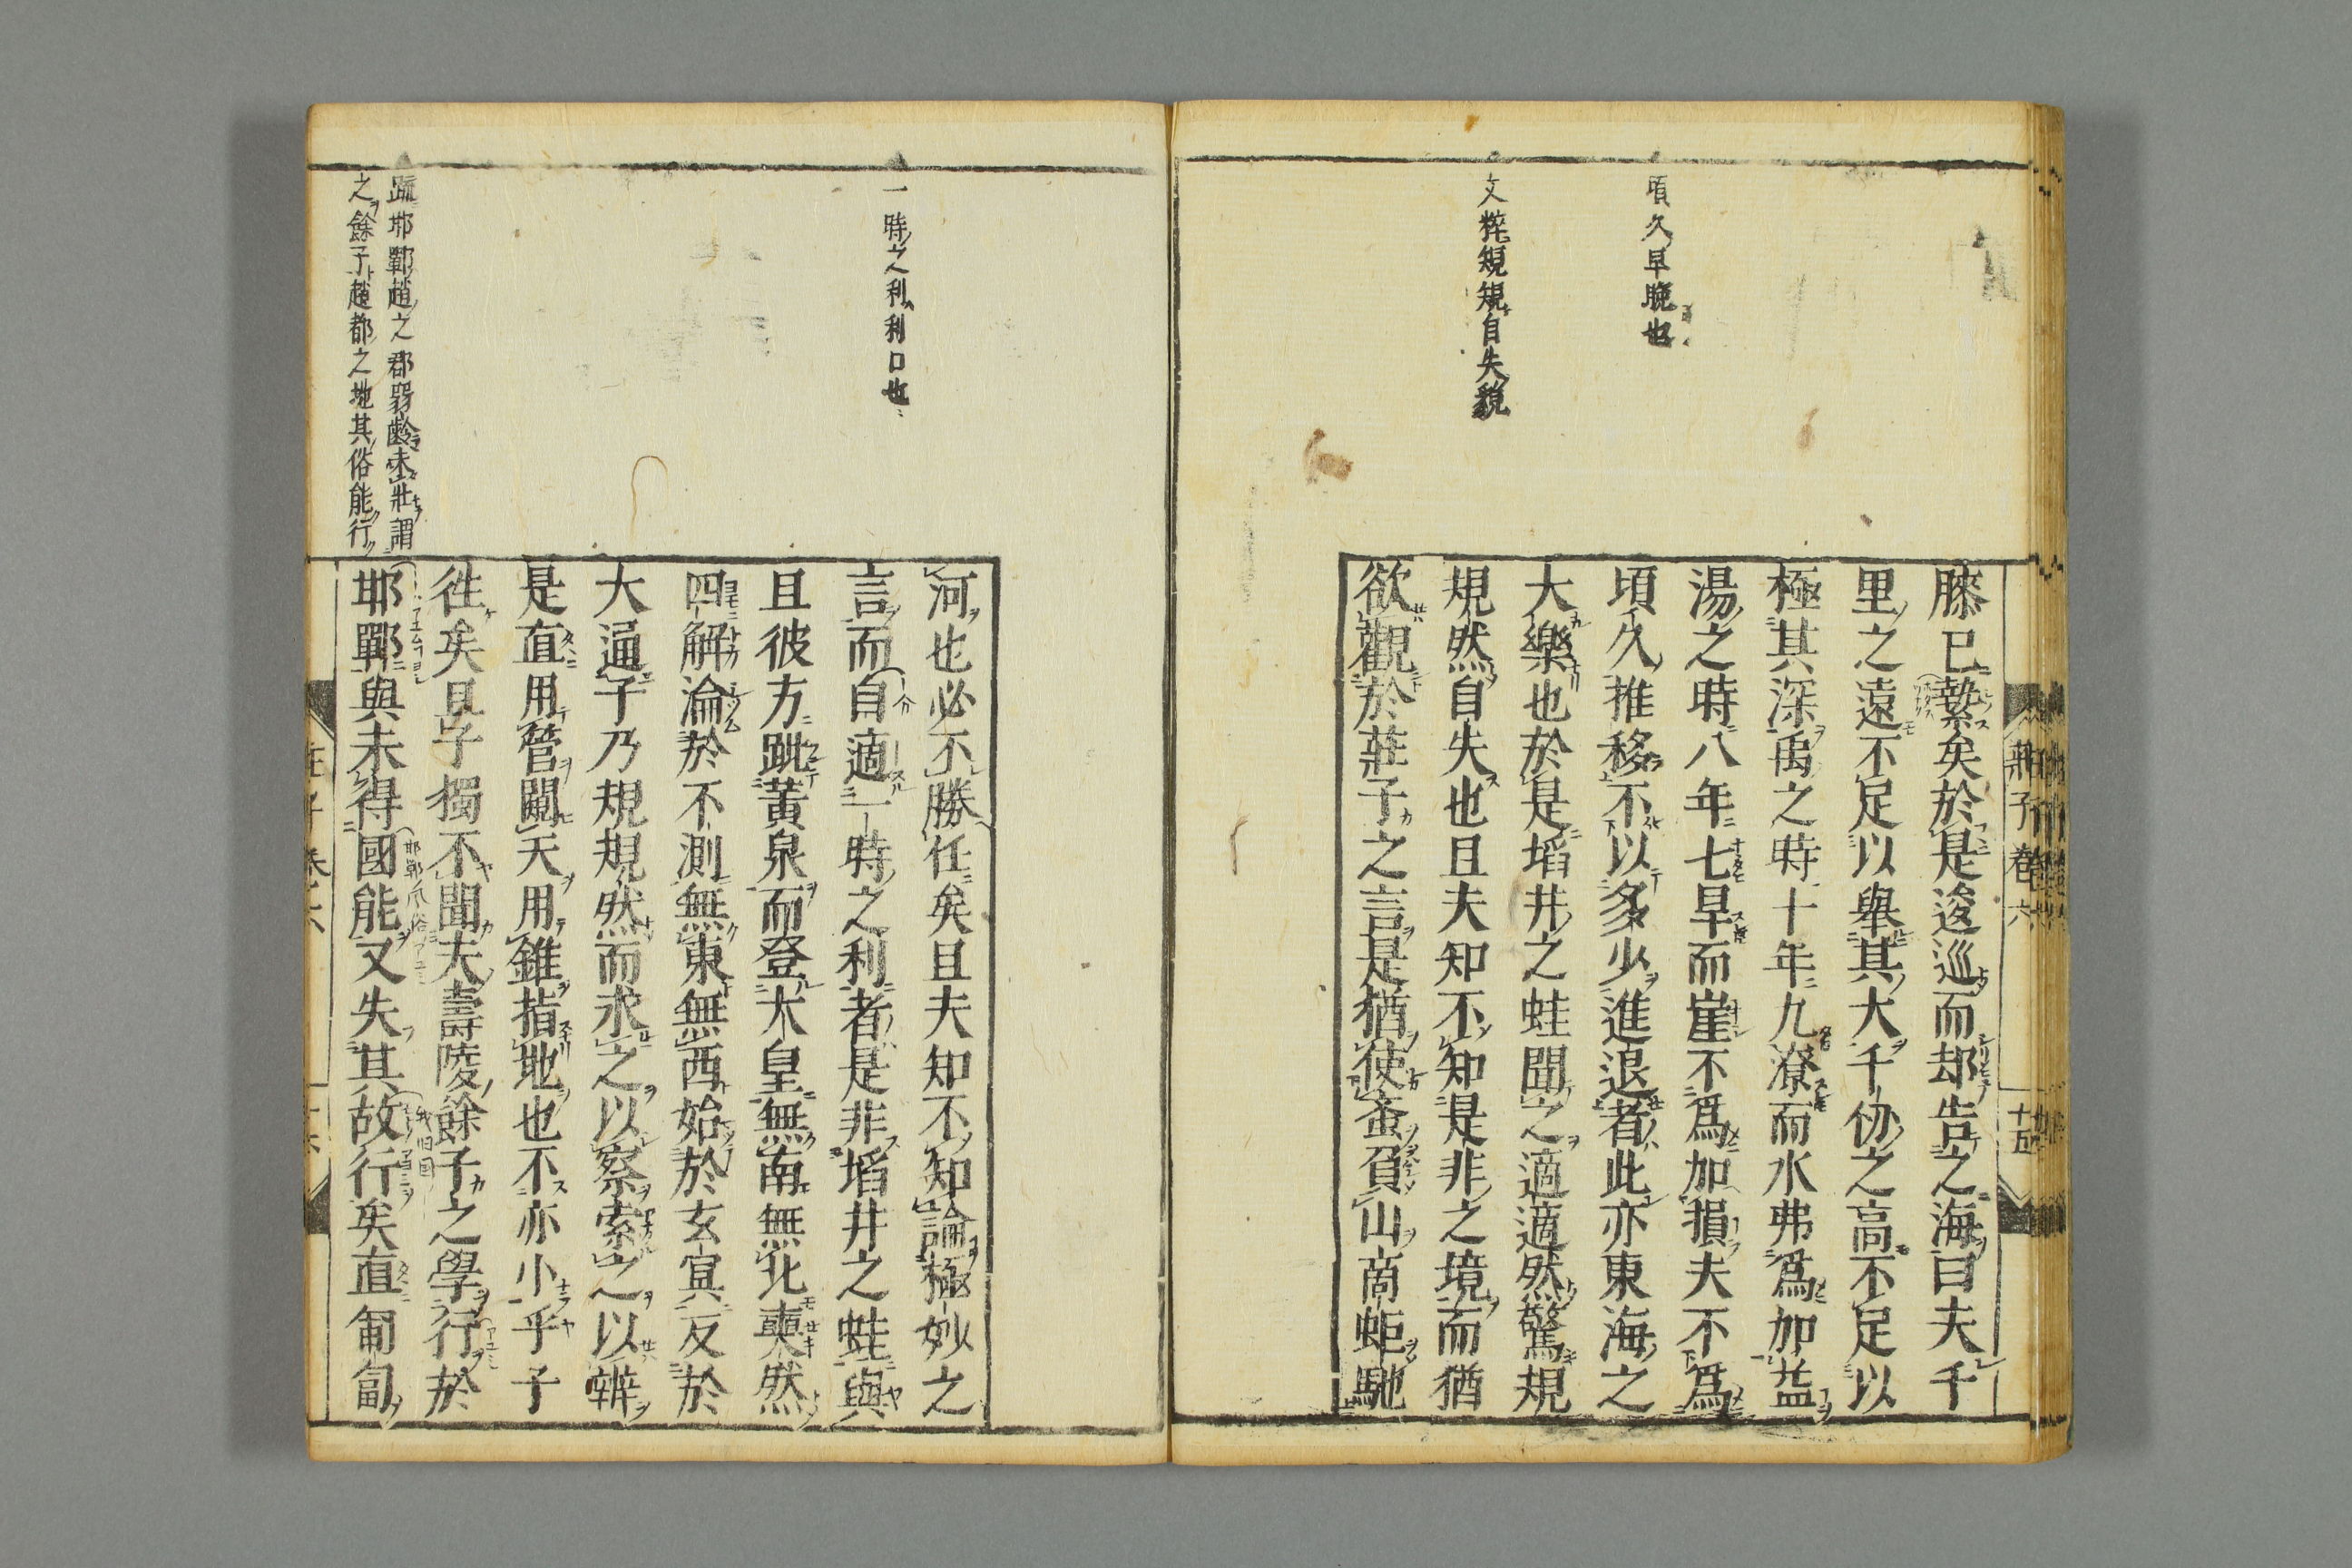 頃久早晚也
文粹規規自失貌
膝已縶矣於是逡巡而却告之海曰夫千
里之遠不足以舉其大千仞之高不足以
極其深禹之時十年九潦而水弗爲加益
湯之時八年七旱而崖不爲加損夫不爲
頃久推移不以多少進退者此亦東海之
大樂也於是埳井之蛙聞之適適然驚規
規然自失也且夫知不知是非之境而猶
欲觀於莊子之言是猶使蚉負山商蚷馳
莊子卷六
十五
一時之利利口也
疏邯鄲趙之郡弱齡未壯謂
之餘子趙都之地其俗能行
河也必不勝任矣且夫知不知論極妙之
言而自適一時之利者是非埳井之蛙與
且彼方跐黃泉而登大皇無南無北奭然
四解淪於不測無東無西始於玄冥反於
大通子乃規規然而求之以察索之以辨
是直用管闚天用錐指地也不亦小乎子
徃矣且子獨不聞夫壽陵餘子之學行於
邯鄲與未得國能又失其故行矣直匍匐